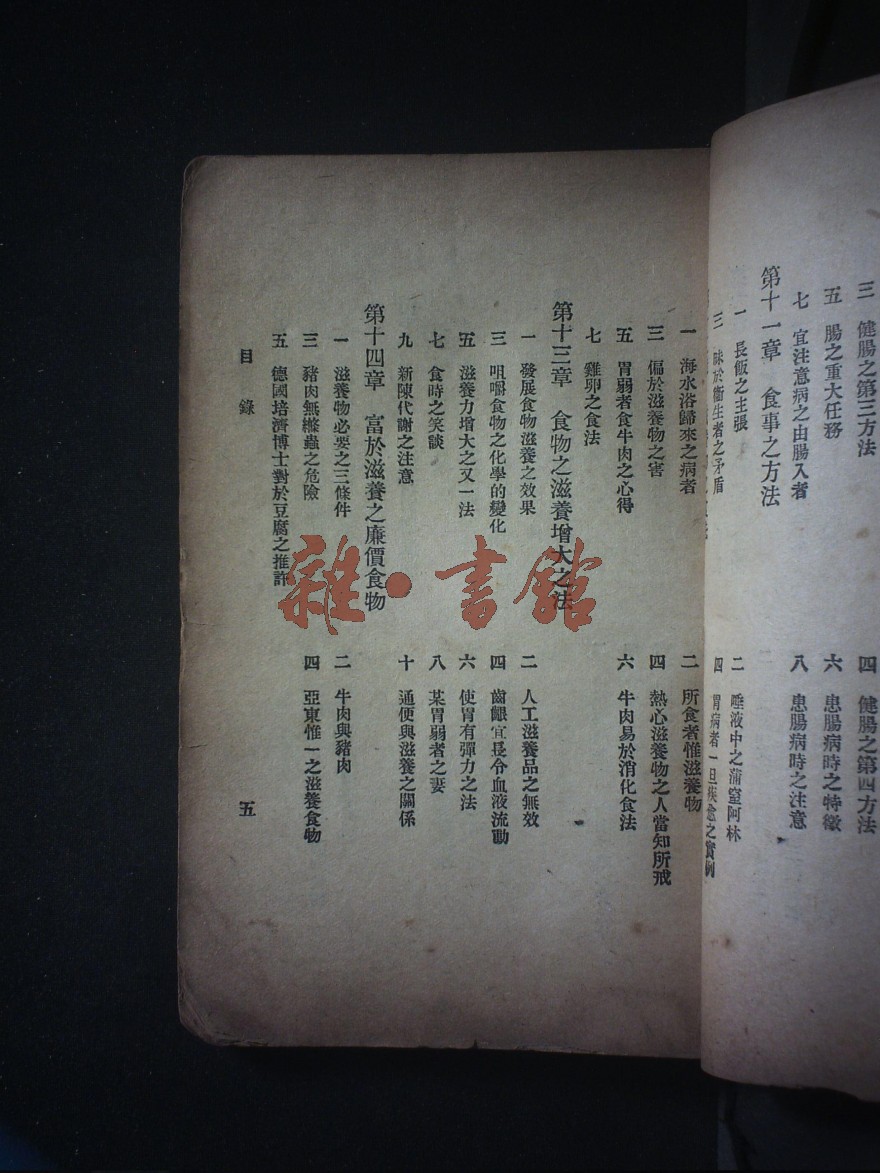 三　健腸之第三方法　四　健腸之第四方法
五　腸之重大任務　六　患腸病時之特徵
七　宜注意病之由腸入者　八　患腸病時之注意
第十一章　食事之方法
一　長飯之主張　二　唾液中之蒲窒阿林
三　昧於衞生者之矛盾　四　胃病者一旦疾愈之實例
一　海水浴歸來之病者　二　所食者惟滋養物
三　偏於滋養物之害　四　熱心滋養物之人當知所戒
五　胃弱者食牛肉之心得　六　牛肉易於消化食法
七　雞卵之食法
第十三章　食物之滋養增大之法
一　發展食物滋養之效果　二　人工滋養品之無效
三　咀嚼食物之化學的變化　四　齒齦宜長令血液流動
五　滋養力增大之又一法　六　使胃有彈力之法
七　食時之笑談　八　某胃弱者之妻
九　新陳代謝之注意　十　通便與滋養之關係
第十四章　富於滋養之廉價食物
一　滋養物必要之三條件　二　牛肉與豬肉
三　豬肉無絛蟲之危險　四　亞東惟一之滋養食物
五　德國培濟博士對於豆腐之推許
目錄　五
雜・書館